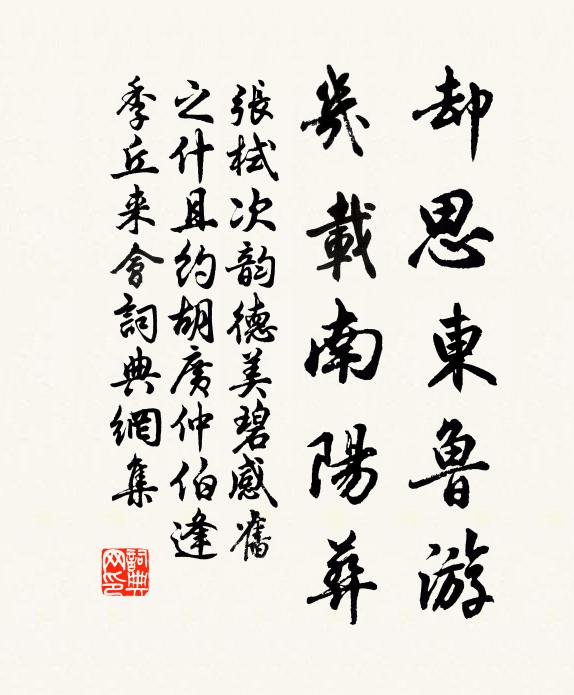 却思東魯游
幾載南陽葬
張栻次韵德美碧感舊
之什且約胡廣仲伯逢
季丘来會詞典網集
詞典网印